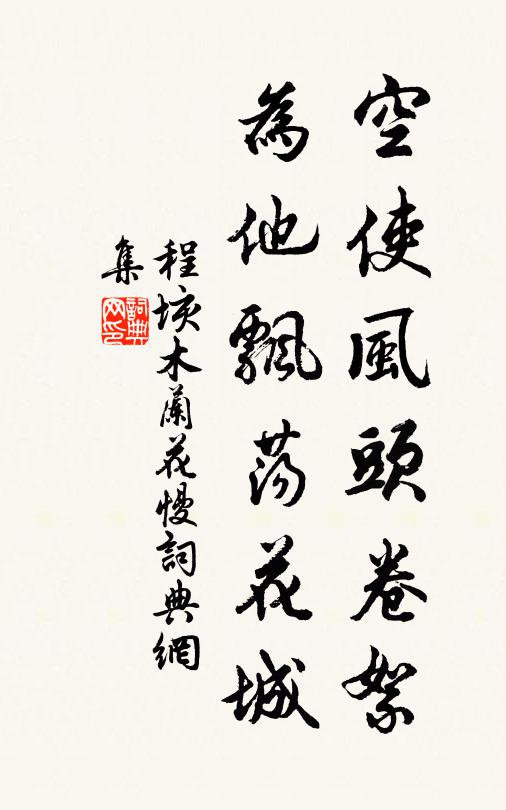 空使風頭卷絮
為他飄蕩花城
程垓木蘭花慢詞典網
集
詞典網印